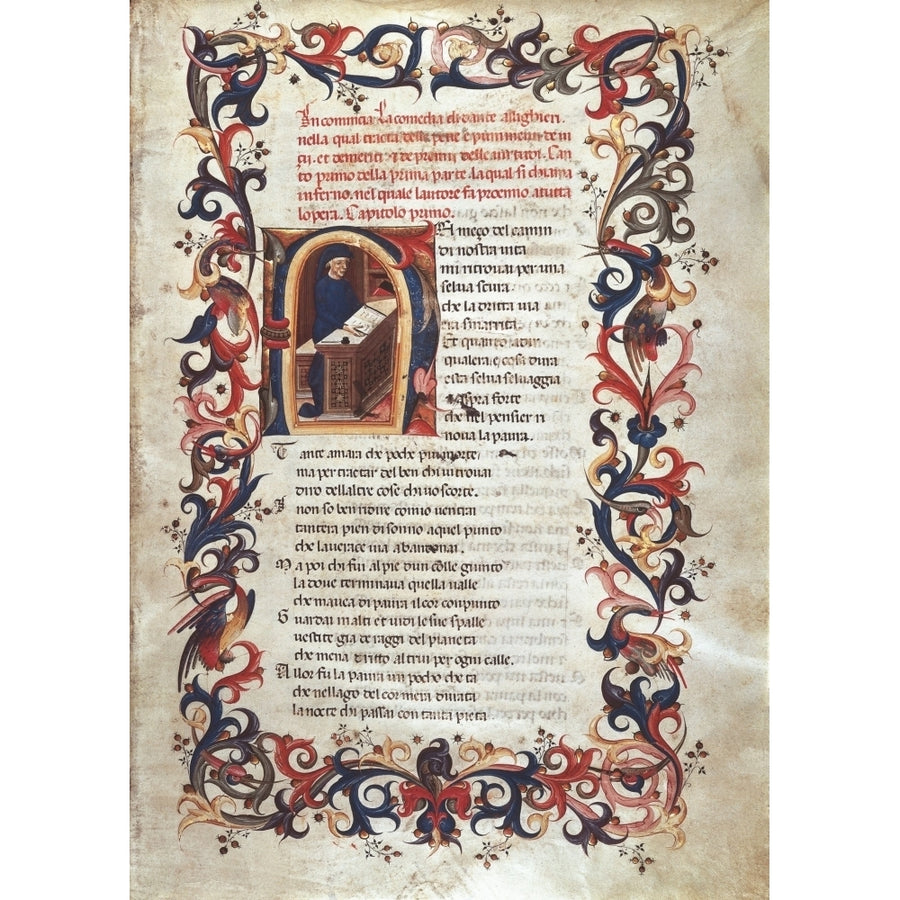 In comincia La comedia di dante allighieri.
nella qual tracta delle pene e punimenti de ui
cij. et demeriti. 7 de premii delle uirtudi. Can
to primo della prima parte. la qual si chiama
inferno. nel quale lautore fa prohemio atutta
lopera. Capitolo primo.
El meço del camin
di nostra uita
mi ritrouai per una
selua scura
che la dritta uia
era smarrita
Et quanto adir
qualera e cosa dura
esta selua seluaggia
aspra forte
che nel pensier ri
noua la paura.
Tante amara che poche piu morte
ma per tractar del ben chi ui trouai
diro dellaltre cose chi uo scorte.
I non so ben ridire comio uentrai
tantera pien di sonno aquel punto
che la uerace uia abandonai.
Ma poi chi fui al pie dun colle giunto
la doue terminaua quella ualle
che mauea di paura il cor conpunto
Guardai in alti et uidi le sue spalle
uestite gia de raggi del pianeta
che mena dritto altrui per ogni calle.
Allor fu la paura un pocho cheta
che nellago del cor mera durata
la nocte chi passai con tanta pieta